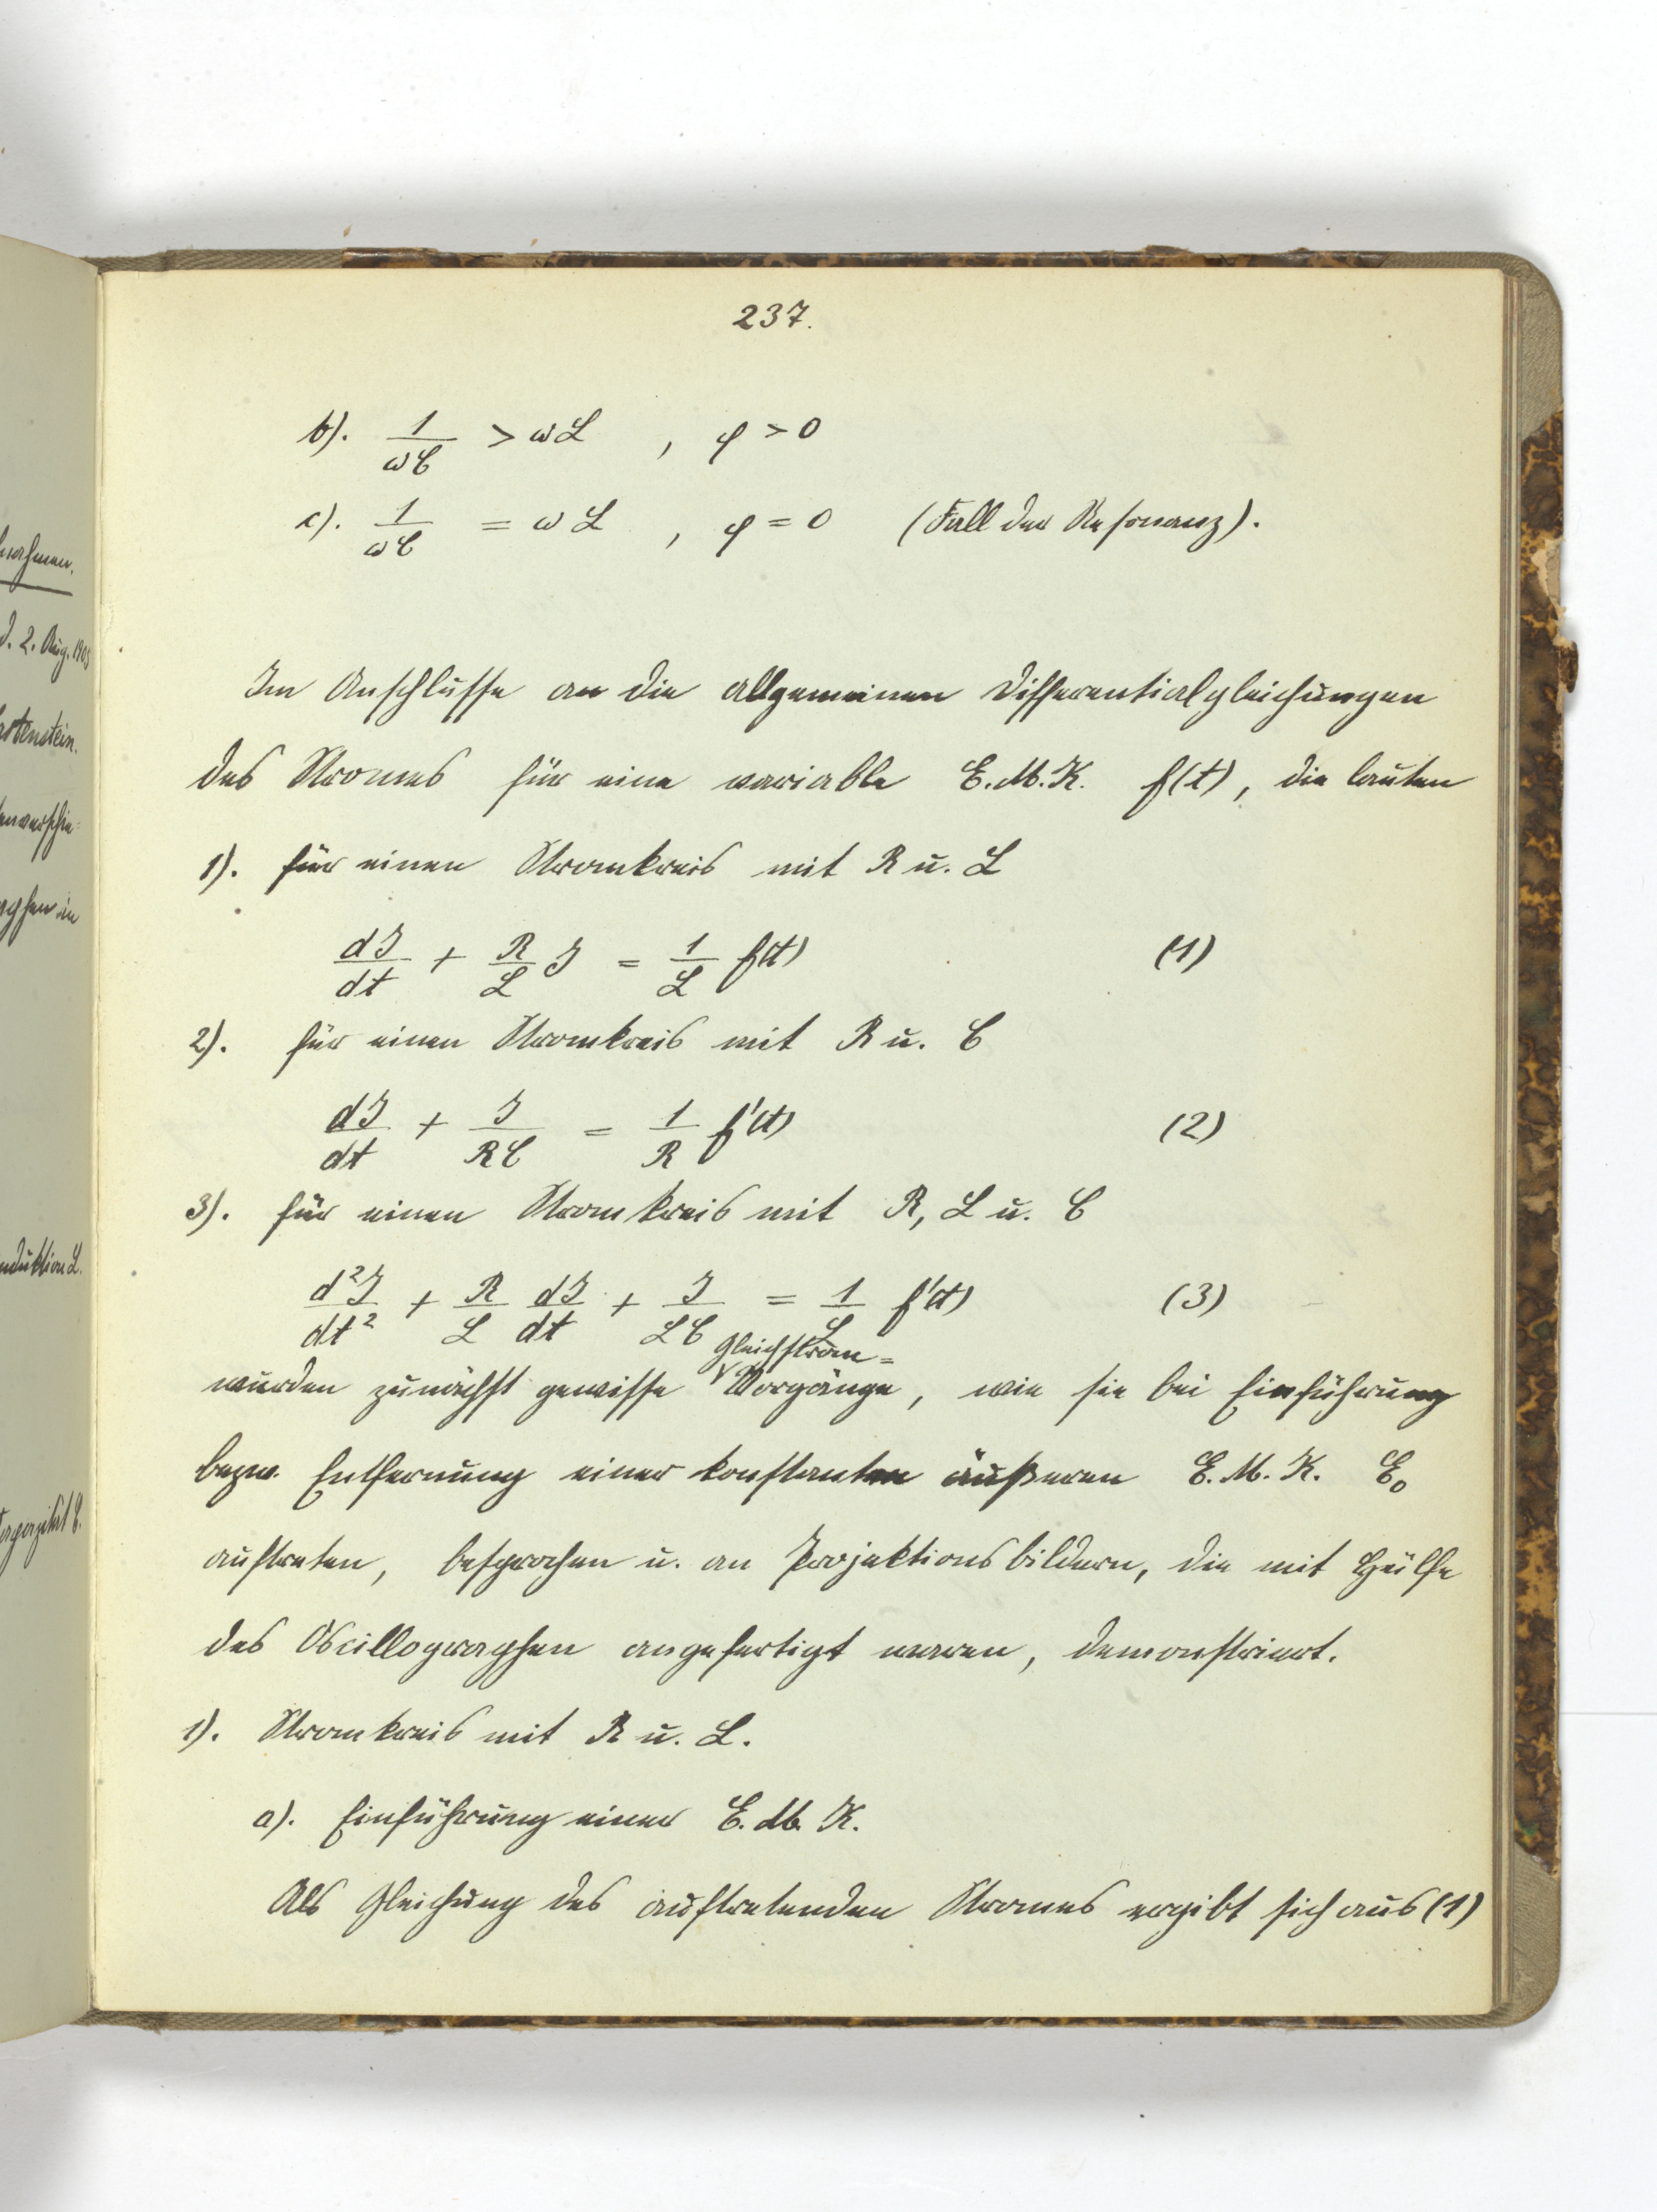 237.
b). 1/ωC > ωL , φ > 0
c). 1/ωC = ωL , φ = 0 (Fall der Resonanz).
Im Anschlusse an die allgemeinen Differentialgleichungen
des Stromes für eine variable E.M.K. f(t), die lauten
1). für einen Stromkreis mit R u. L
dJ/dt + R/L J = 1/L f(t) (1)
2). für einen Stromkreis mit R u. C
dJ/dt + J/RC = 1/R f'(t) (2)
3). für einen Stromkreis mit R, L u. C
d²J/dt² + R/L dJ/dt + J/LC = 1/L f'(t) (3)
Gleichstrom=
wurden zunächst gewisse Vorgänge, wie sie bei Einführung
bezw. Entfernung einer konstanten äußeren E.M.K. E₀
auftreten, besprochen u. an Projektionsbildern, die mit Hülfe
des Oscillographen angefertigt waren, demonstriert.
1). Stromkreis mit R u. L.
a). Einführung einer E.M.K.
Als Gleichung des auftretenden Stromes ergibt sich aus (1)
nahmen.
d. 2. Aug. 1905
duktion L.